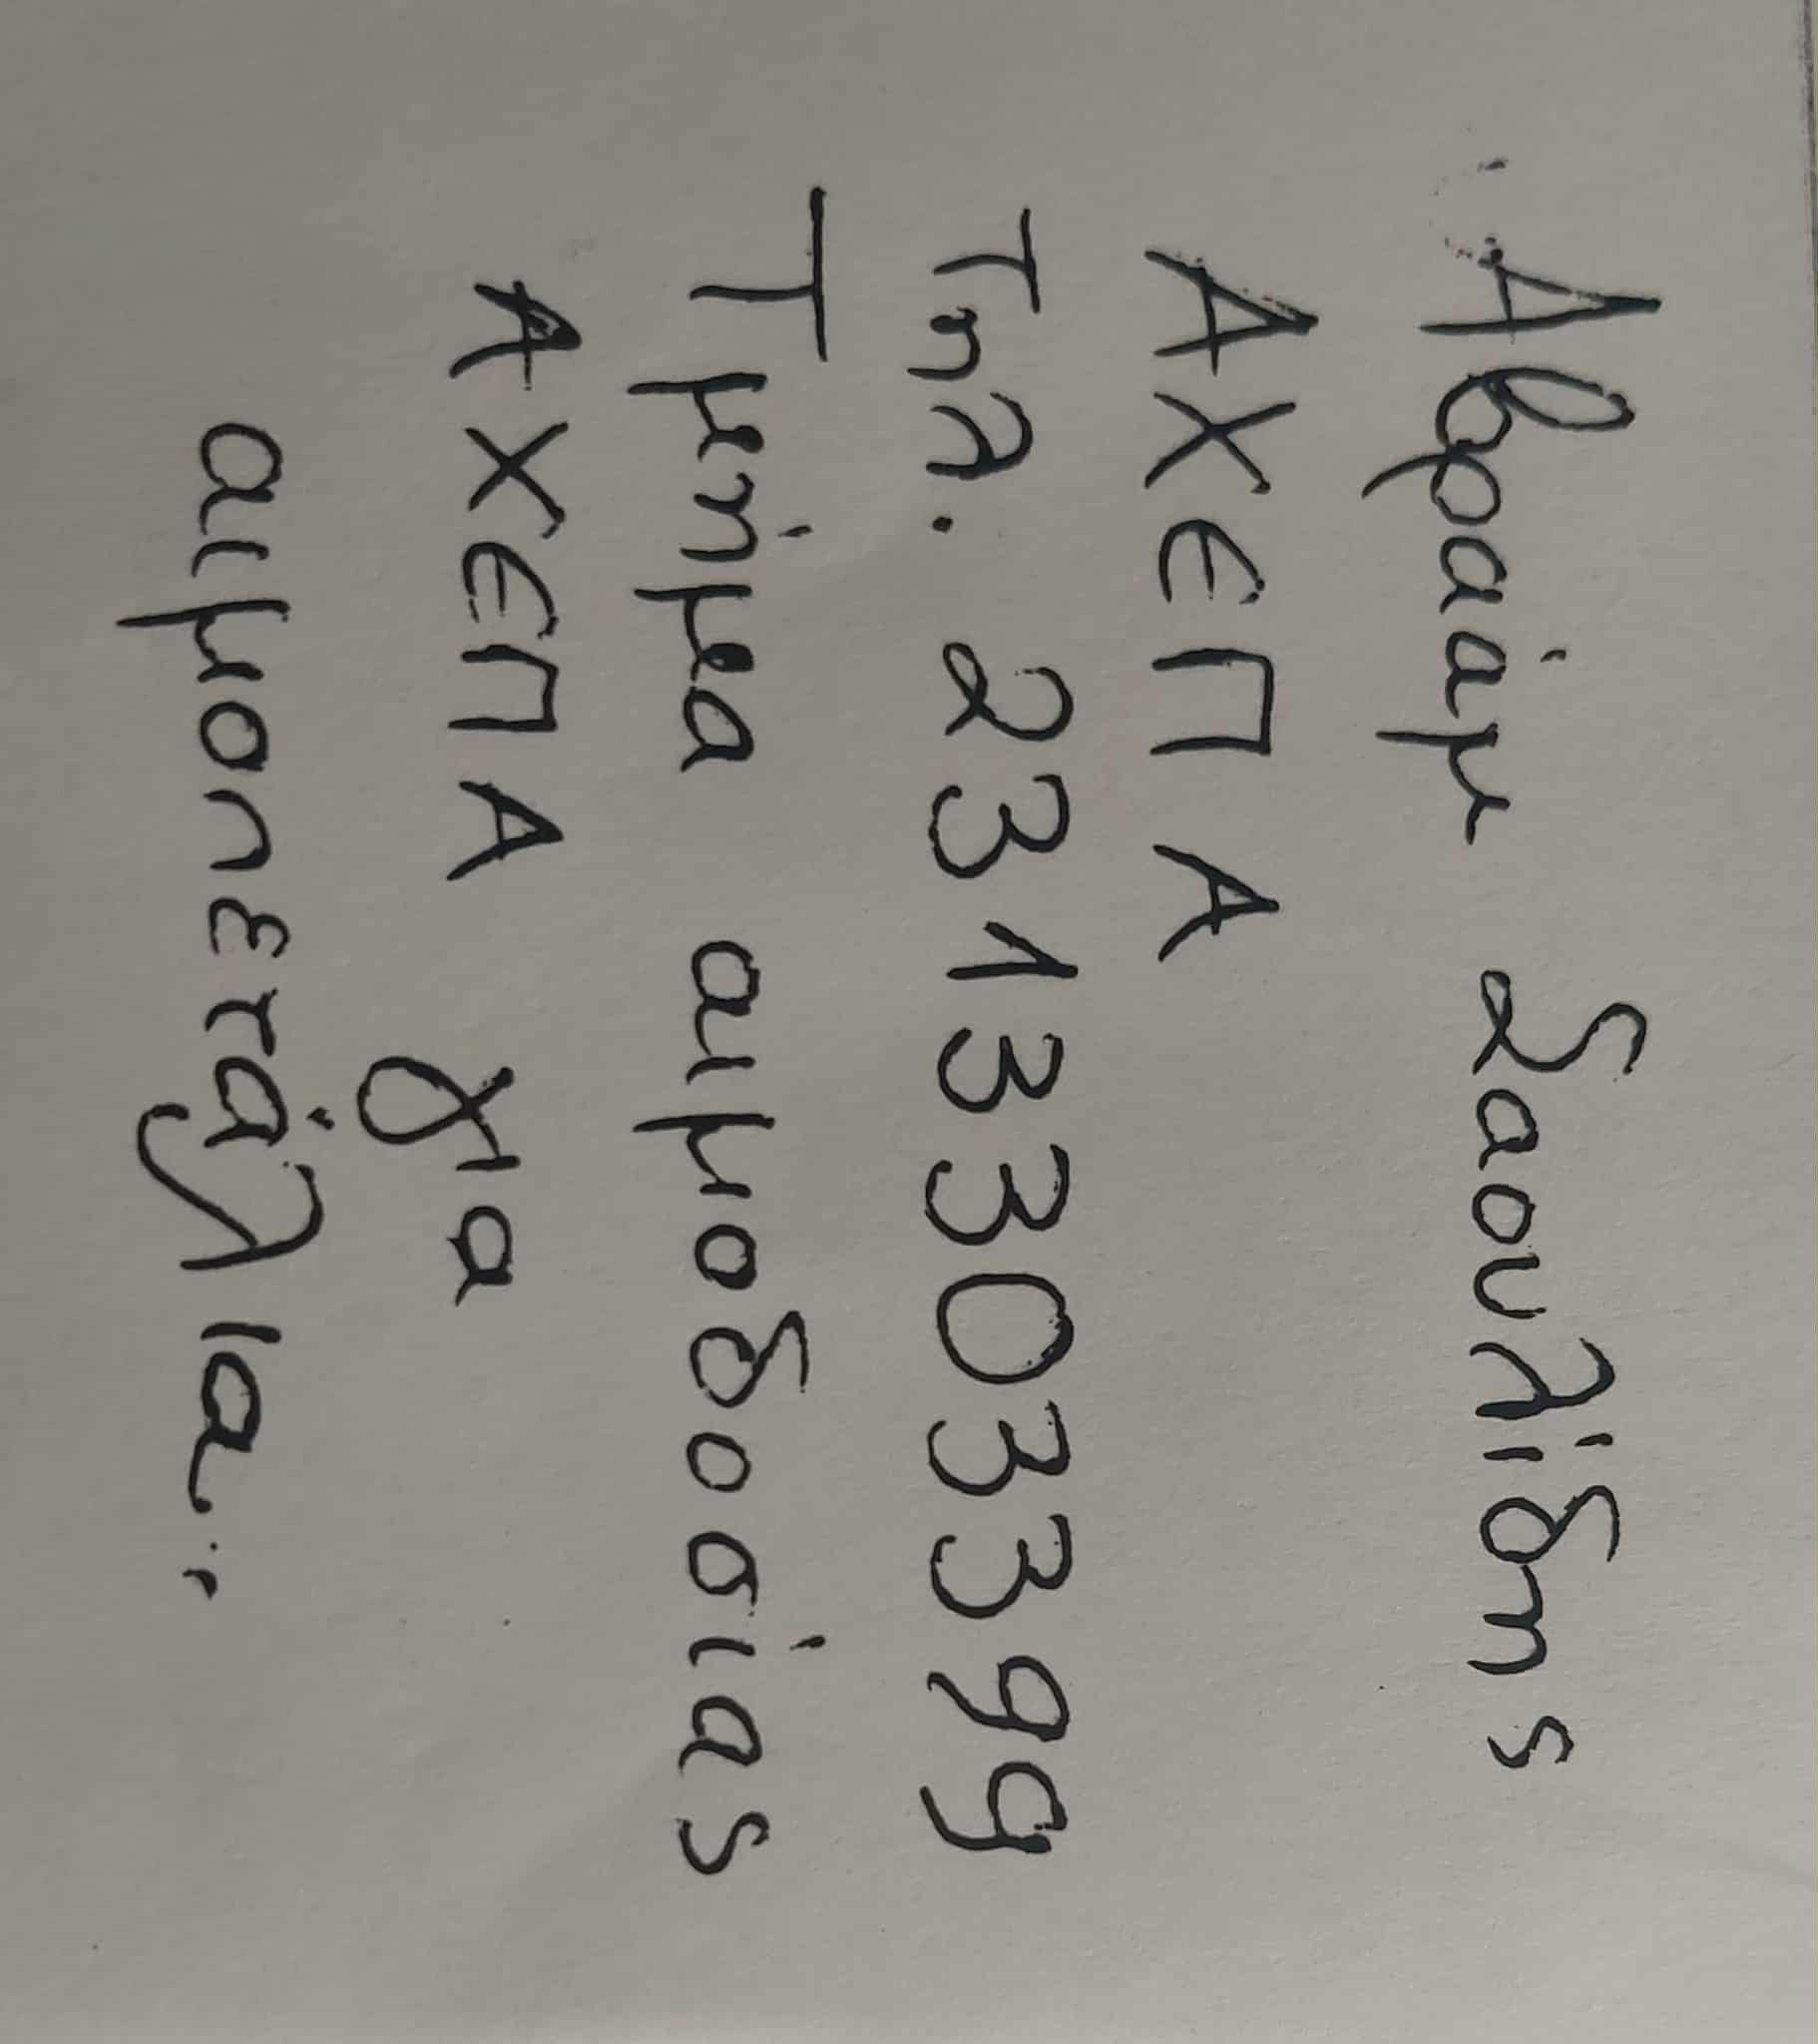 Αβραάμ Σαουλίδης
ΑΧΕΠΑ
Τηλ. 2313303399
Τμήμα αιμοδοσίας
ΑΧΕΠΑ για
αιμοπετάλια..